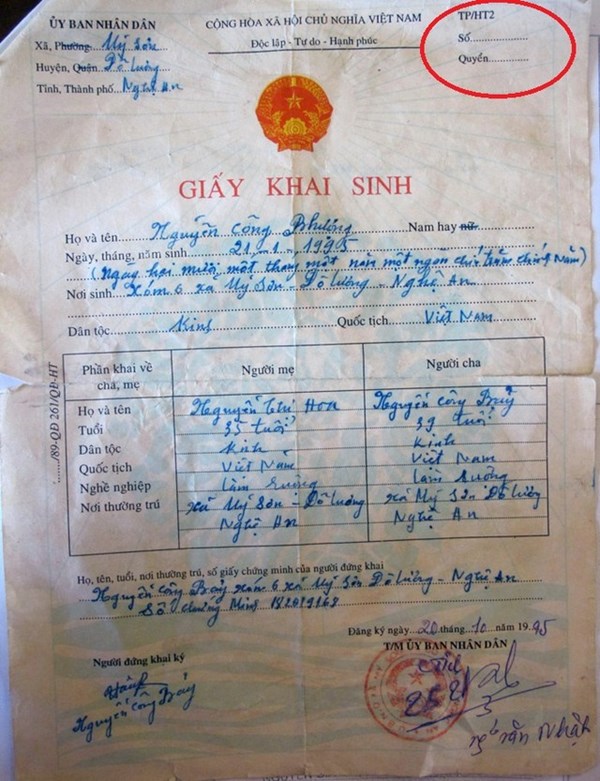 ỦY BAN NHÂN DÂN
CỘNG HÒA XÃ HỘI CHỦ NGHĨA VIỆT NAM
TP/HT2
Xã, Phường Mỹ Sơn
Độc lập - Tự do - Hạnh phúc
Số
Huyện, Quận Đô Lương
Quyển
Tỉnh, Thành phố Nghệ An
GIẤY KHAI SINH
Họ và tên Nguyễn Công Phượng Nam hay nữ
Ngày, tháng, năm sinh 21 - 1 - 1995
(Ngày hai mươi một tháng một năm một ngàn chín trăm chín 5 năm)
Nơi sinh Xóm 6 xã Mỹ Sơn - Đô Lương - Nghệ An
Dân tộc Kinh Quốc tịch Việt Nam
Phần khai về cha, mẹ
Người mẹ
Người cha
Họ và tên Nguyễn Thị Hoa Nguyễn Công Bảy
Tuổi 35 tuổi 39 tuổi
Dân tộc Kinh Kinh
Quốc tịch Việt Nam Việt Nam
Nghề nghiệp Làm Ruộng Làm Ruộng
Nơi thường trú Xã Mỹ Sơn - Đô Lương Xã Mỹ Sơn Đô Lương
Nghệ An Nghệ An
...../89-QĐ 261/QĐ-HT
Họ, tên, tuổi, nơi thường trú, số giấy chứng minh của người đứng khai
Nguyễn Công Bảy xóm 6 xã Mỹ Sơn Đô Lương - Nghệ An
Số chứng minh
Đăng ký ngày 20 tháng 10 năm 1995
T/M ỦY BAN NHÂN DÂN
Người đứng khai ký
Nguyễn Công Bảy